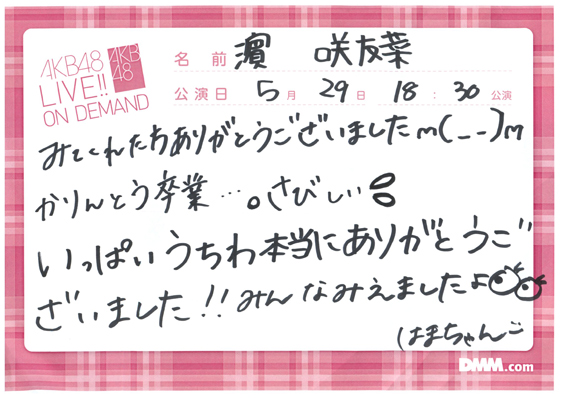 AKB48
LIVE!!
ON DEMAND
AKB
48
名前 濵 咲友菜
公演日 5月 29日 18:30 公演
みてくれたちありがとうございましたm(_ _)m
かりんとう卒業…。さびしい
いっぱいうちわ本当にありがとうご
ざいました!!みんなみえましたよ
はまちゃん
DMM.com